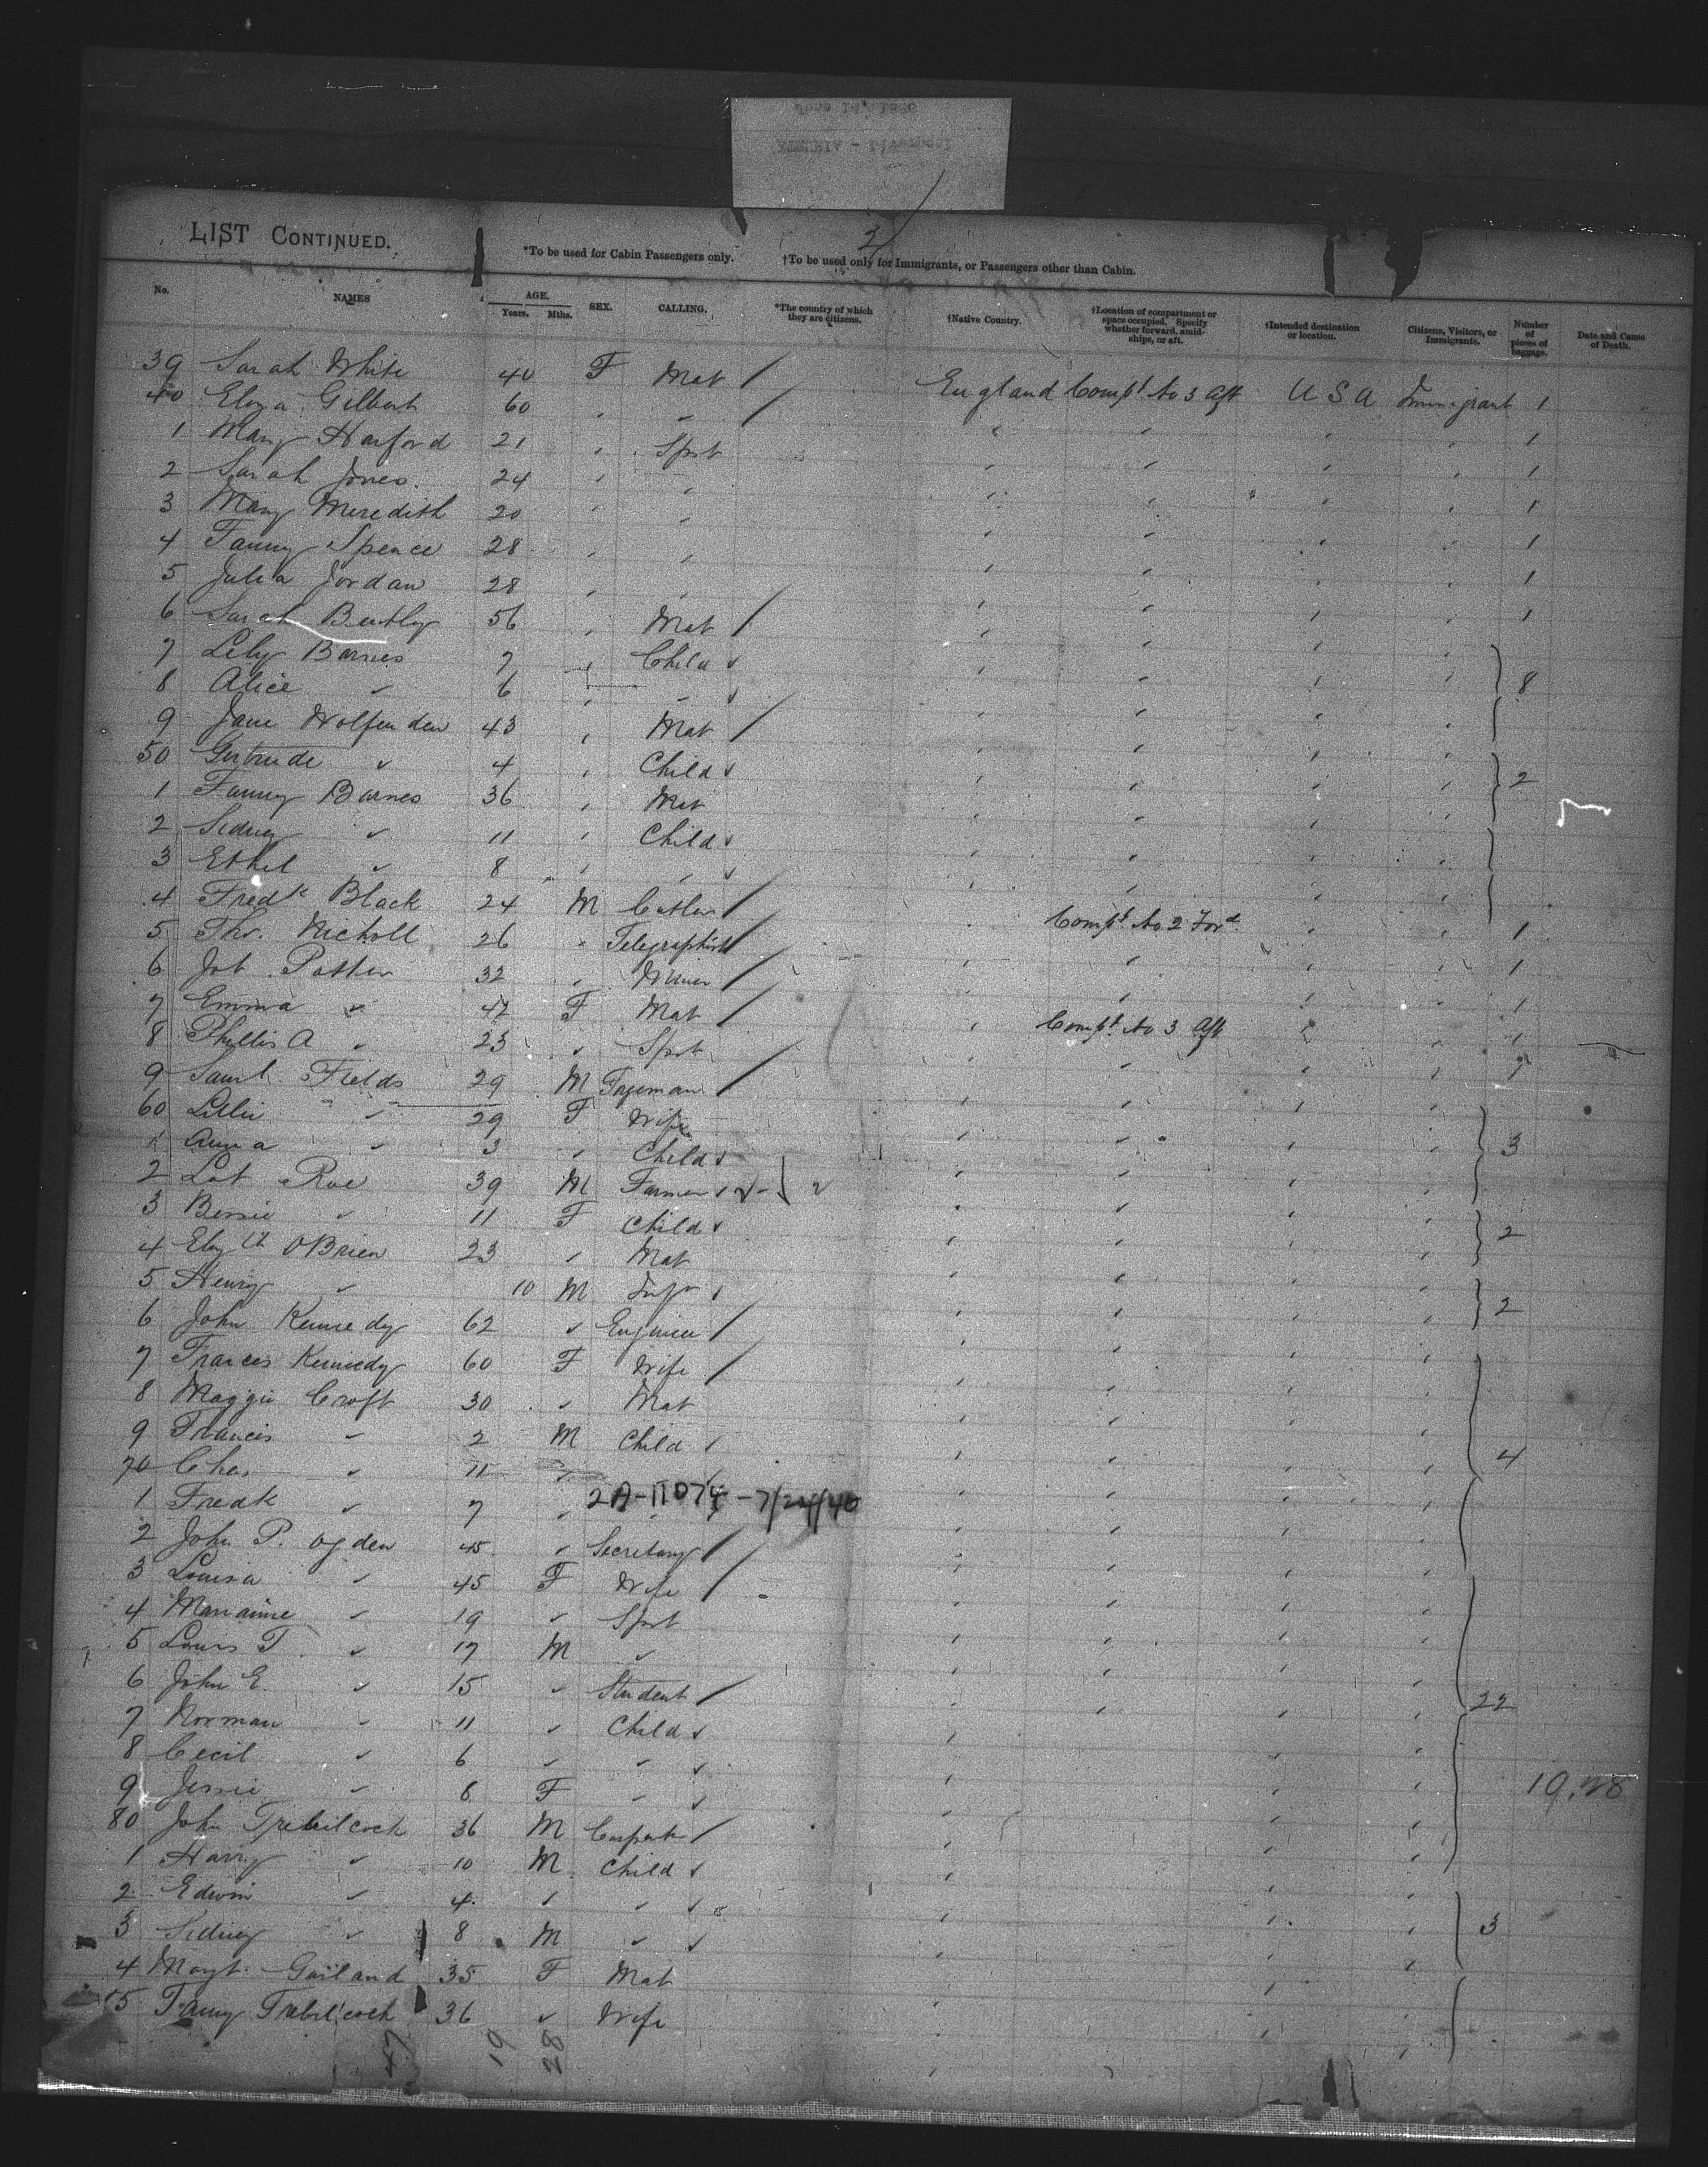 LIST CONTINUED.
2
*To be used for Cabin Passengers only. †To be used only for Immigrants, or Passengers other than Cabin.
No. NAMES AGE. Years. Mths. SEX. CALLING. *The country of which they are citizens. †Native Country. †Location of compartment or space occupied. Specify whether forward, amidships, or aft. †Intended destination or location. Citizens, Visitors, or Immigrants. Number of pieces of baggage. Date and Cause of Death.
39 Sarah White 40 F Mat England Compt No 3 Aft U S A Immigrant 1
40 Eliza Gilbert 60 1
1 Mary Harford 21 Spst 1
2 Sarah Jones 24 1
3 Mary Meredith 20 1
4 Fanny Spence 28 1
5 Julia Jordan 28 1
6 Sarah Bently 56 Mat
7 Lily Barnes 7 Child 8
8 Alice 6
9 Jane Wolfenden 43 Mat
50 Gertrude 4 Child 2
1 Fanny Barnes 36 Mat
2 Sidney 11 Child
3 Ethel 8
4 Fredk Black 24 M Cutler Compt No 2 Ford 1
5 Tho. Nicholl 26 Telegraphist 1
6 Job Potter 32 Miner 1
7 Emma 47 F Mat Compt No 3 Aft 1
8 Phillis A 23 Spst 1
9 Saml Fields 29 M
60 Lillie 29 F Wife 3
1 Anna 3 Child
2 Lot Roe 39 M Farmer
3 Bessie 11 F Child 2
4 Elizth OBrien 23 Mat
5 Henry 10 M Inft 2
6 John Kennedy 62 Engineer
7 Frances Kennedy 60 F Wife
8 Maggie Croft 30 Mat
9 Francis 2 M Child 4
70 Chas 11
1 Fredk 7 2A-11074-7/24/40
2 John P. Ogden 45 Secretary
3 Louisa 45 F Wife
4 Marianne 19 Spst
5 Louis T. 17 M
6 John E. 15 Student 22
7 Norman 11 Child
8 Cecil 6
9 Jessie 6 F 19.28
80 John Trebilcock 36 M Carpentr
1 Harry 10 M Child
2 Edwin 4
3 Sidney 8 M 3
4 Margt Gailand 35 F Mat
85 Fanny Trebilcock 36 Wife
47 19 28